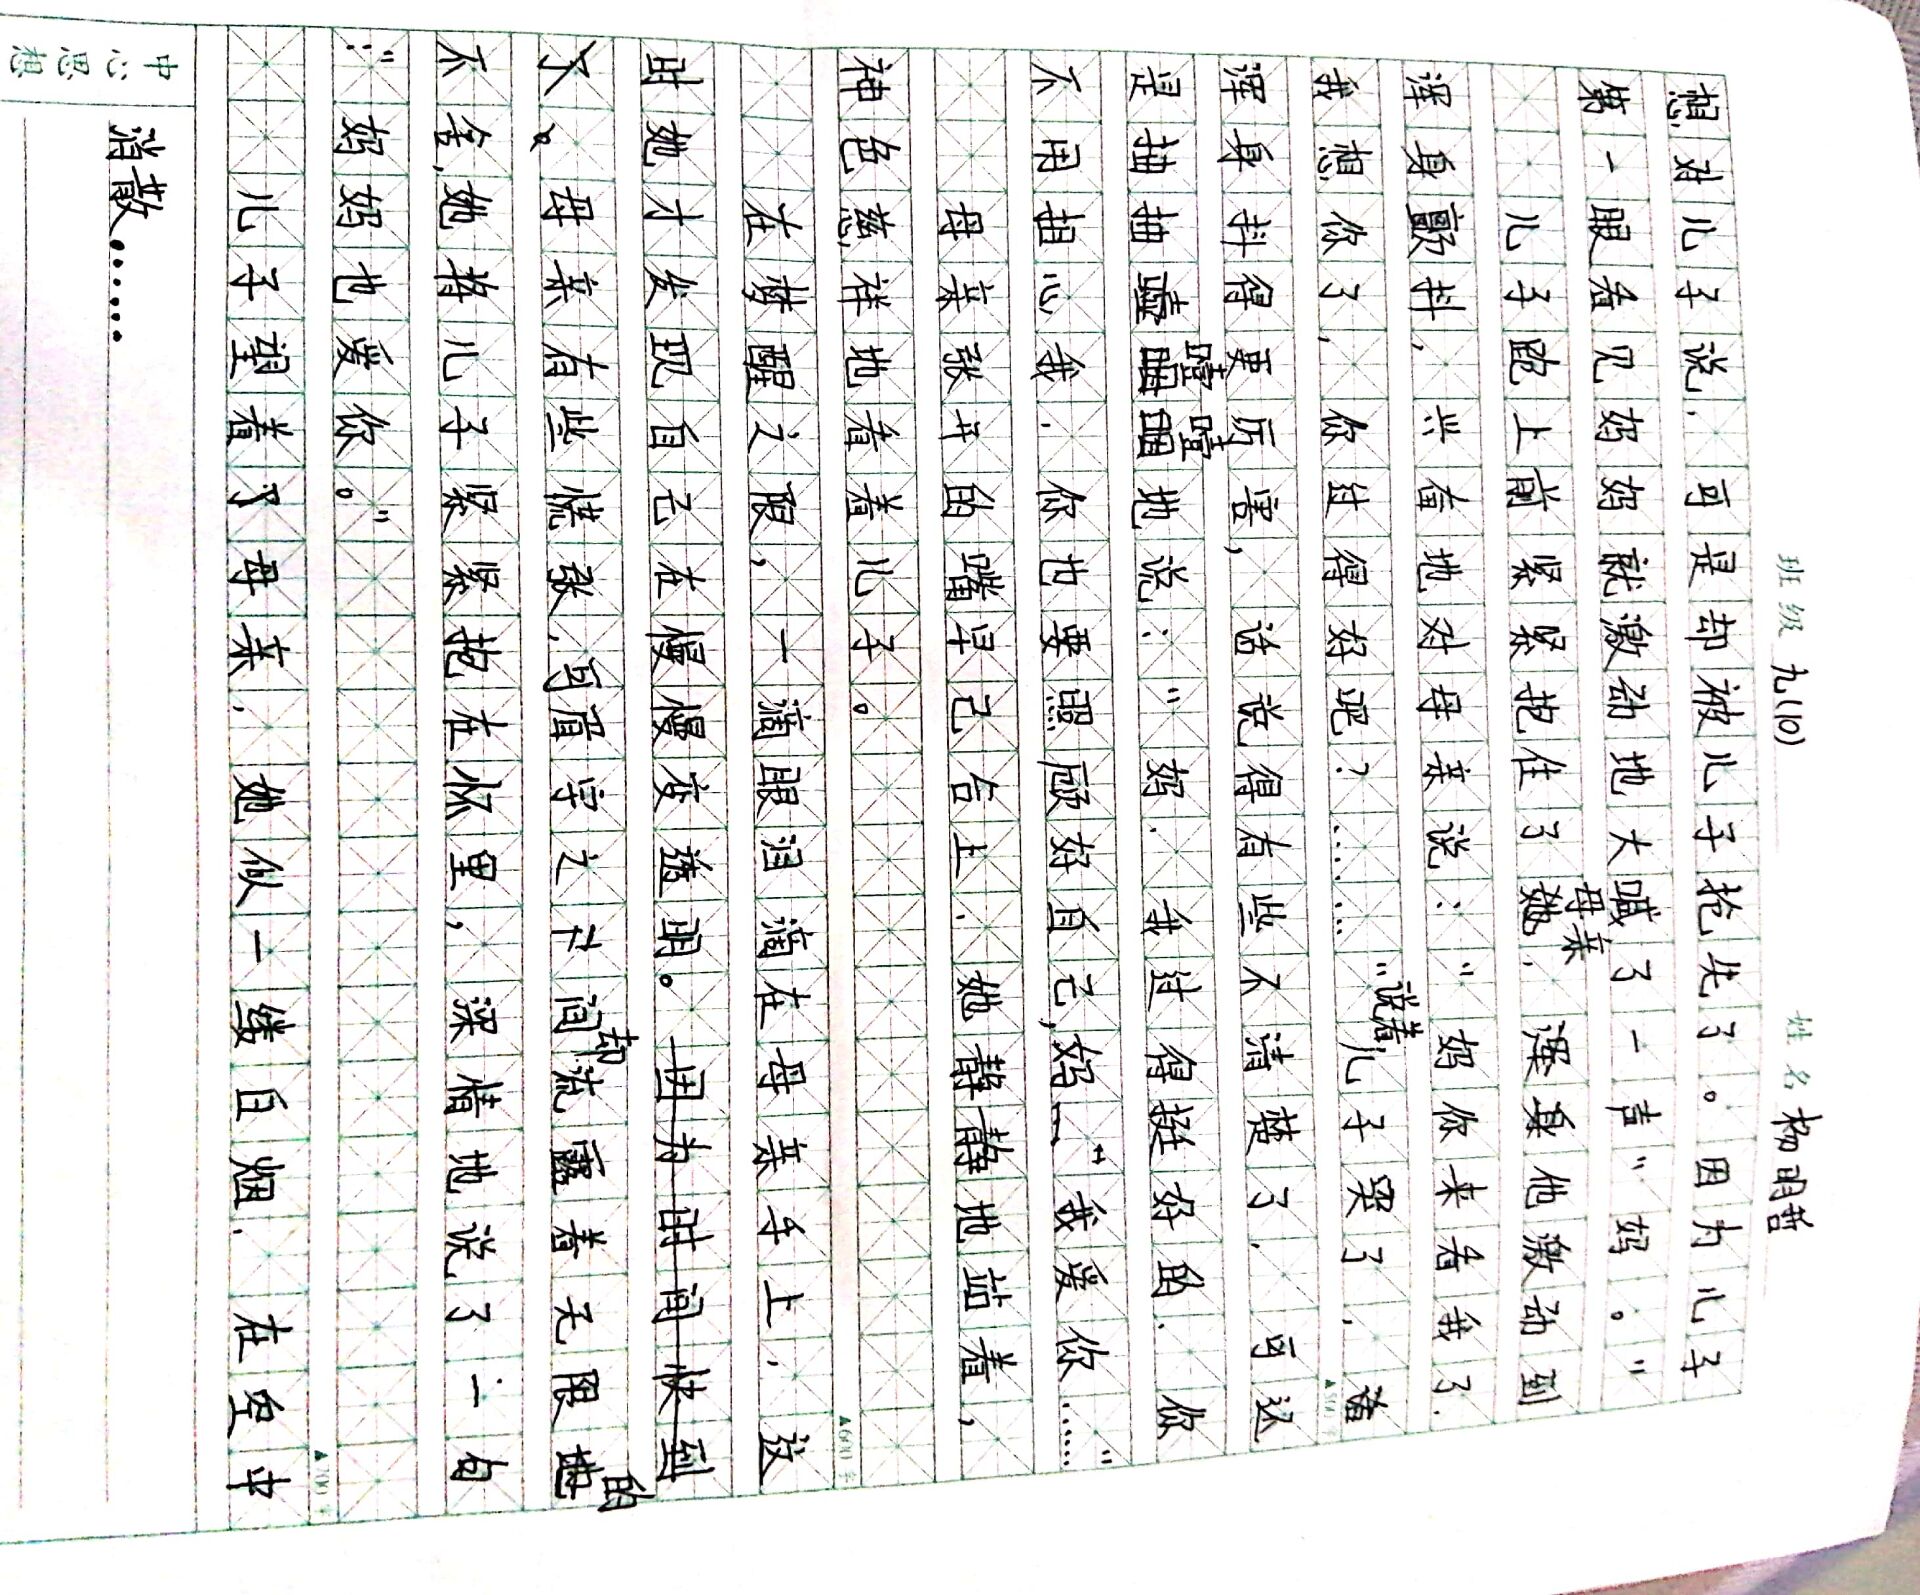 班级 九(10) 姓名 杨明哲
想对儿子说，可是却被儿子抢先了。因为儿子
第一眼看见妈妈就激动地大喊了一声“妈。”
儿子跑上前紧紧抱住了母亲，激动到
浑身颤抖，兴奋地对母亲说：“妈你来看我了，
我想你了，你过得好吧？……”说着儿子哭了，
浑身抖得更厉害，话说得有些不清楚了，可还
是抽抽噎噎地说：“妈，我过得挺好的，你
不用担心我，你也要照顾好自己，妈—“我爱你……”
母亲张开的嘴早已合上，她静静地站着，
神色慈祥地看着儿子。
在梦醒之限，一滴眼泪滴在母亲手上，这
时她才发现自己在慢慢变透明。因为时间快到
了。母亲有些慌张，可眉宇之间却流露着无限的
不舍，她将儿子紧紧抱在怀里，深情地说了一句
：“妈妈也爱你。”
儿子望着母亲，她似一缕白烟，在空中
消散……
中心思想
▲600字
▲700字